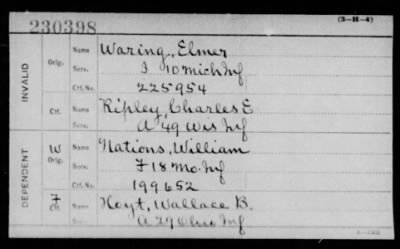 230398
(3-H-4)
INVALID
Orig.
Name Waring, Elmer
Serv. I 10 Mich Inf
Ctf. No. 225954
Ctf.
Name Ripley, Charles E
Serv. A 49 Wis Inf
DEPENDENT
W
Orig.
Name Nations, William
Serv. F 18 Mo. Inf
Ctf. No. 199652
F
Ctf.
Name Hoyt, Wallace B.
Serv. A 29 Ohio Inf